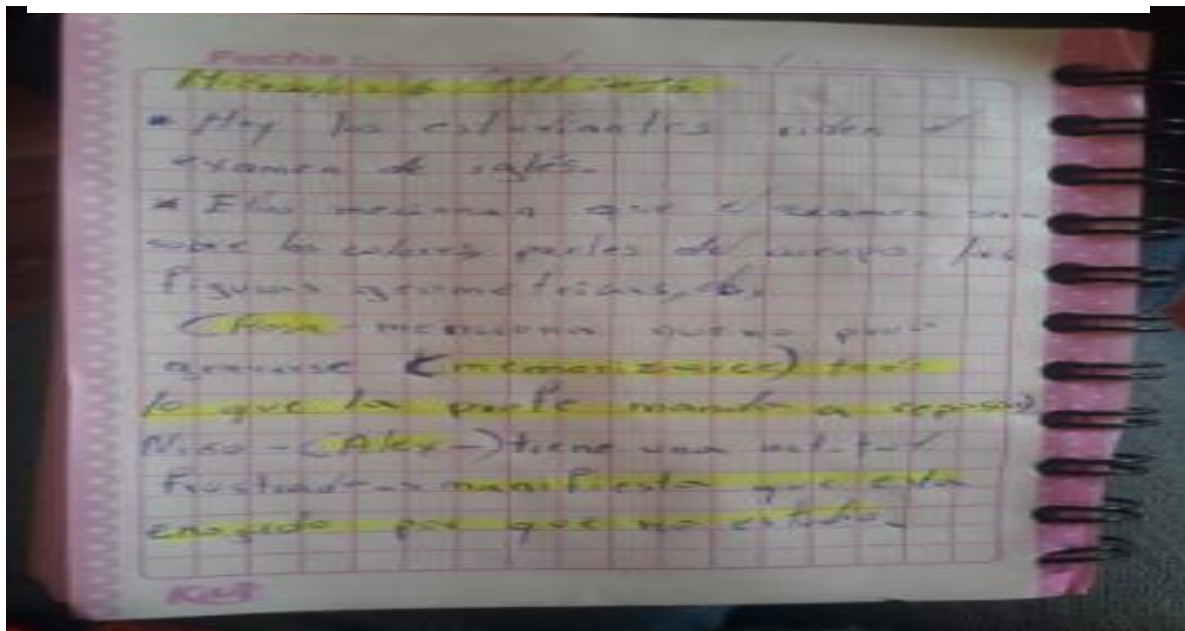 Fecha:
* Hoy los estudiantes rinden el
examen de inglés.
* Ellos mecionan que el examen
sobre los colores, partes del cuerpo, las
figuras geometricas,
(Rosa - menciona que no pudo
gravarse (memorizarse) todo
lo que la profe manda a repasar)
Niño - (Alex -) tiene una actitud
frustrado - manifiesta que esta
enojado por que no estudio.